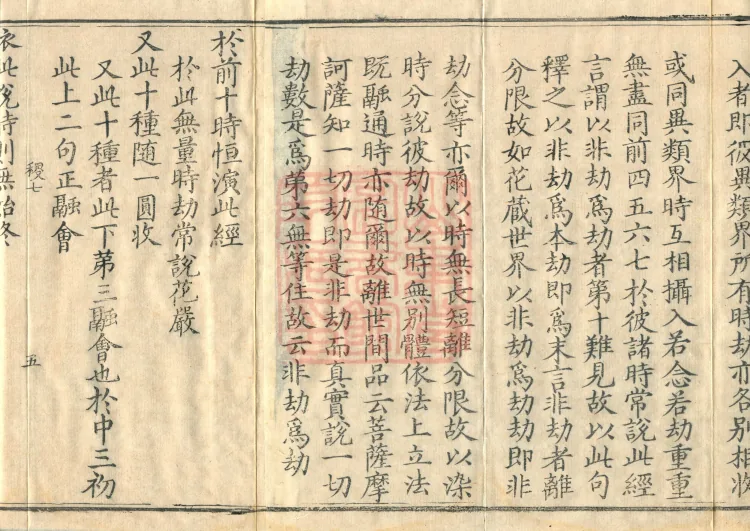 入者即彼異類界所有時劫亦各別相收
或同異類界時互相攝入若念若劫重重
無盡同前四五六七於彼諸時常說此經
言謂以非劫爲劫者第十難見故以此句
釋之以非劫爲本劫即爲末言非劫者離
分限故如花藏世界以非劫爲劫劫即非
劫念等亦爾以時無長短離分限故以染
時分說彼劫故以時無別體依法上立法
既融通時亦随爾故離世間品云菩薩摩
訶薩知一切劫即是非劫而真實說一切
劫數是爲第六無等住故云非劫爲劫
於前十時恒演此經
於此無量時劫常說花嚴
又此十種隨一圓收
又此十種者此下第三融會也於中三初
此上二句正融會
稷七
五
衣此說時則無始終